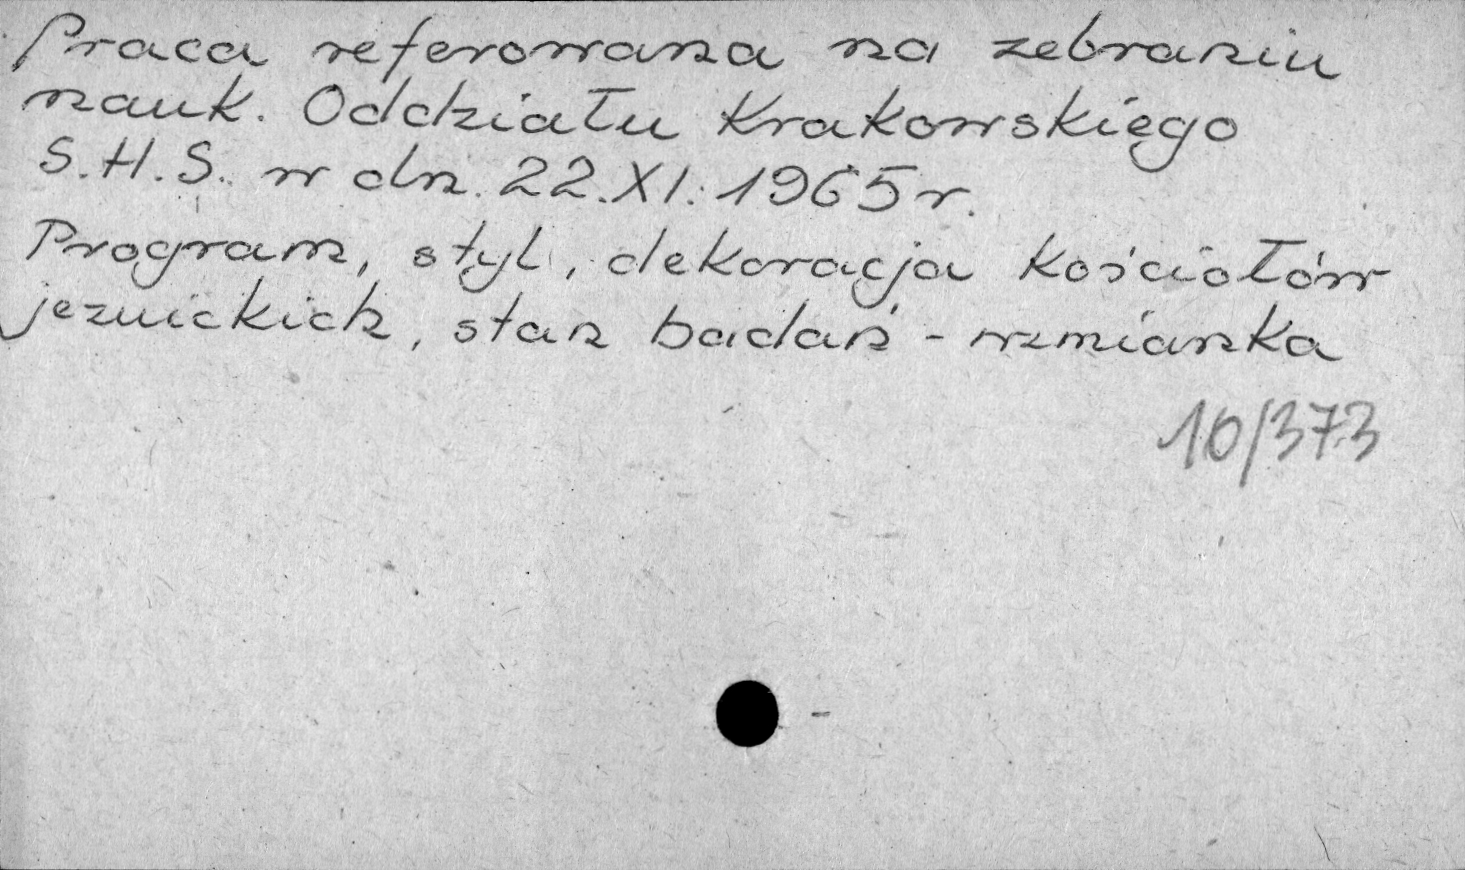 Praca referowana na zebraniu
nauk. Oddziału Krakowskiego
S.H.S. w dn. 22.XI.1965 r.
Program, styl, dekoracja kościołów
jezuickich, stan badań - wzmianka
10/373